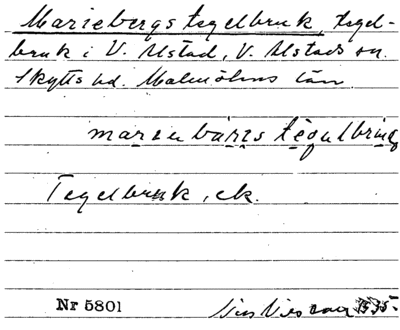 Mariebergs tegelbruk, tegel-
bruk i V. Alstad, V. Alstads sn.
Skytts hd. Malmöhus län
Tegelbruk, ek.
Nr 5801
1935.